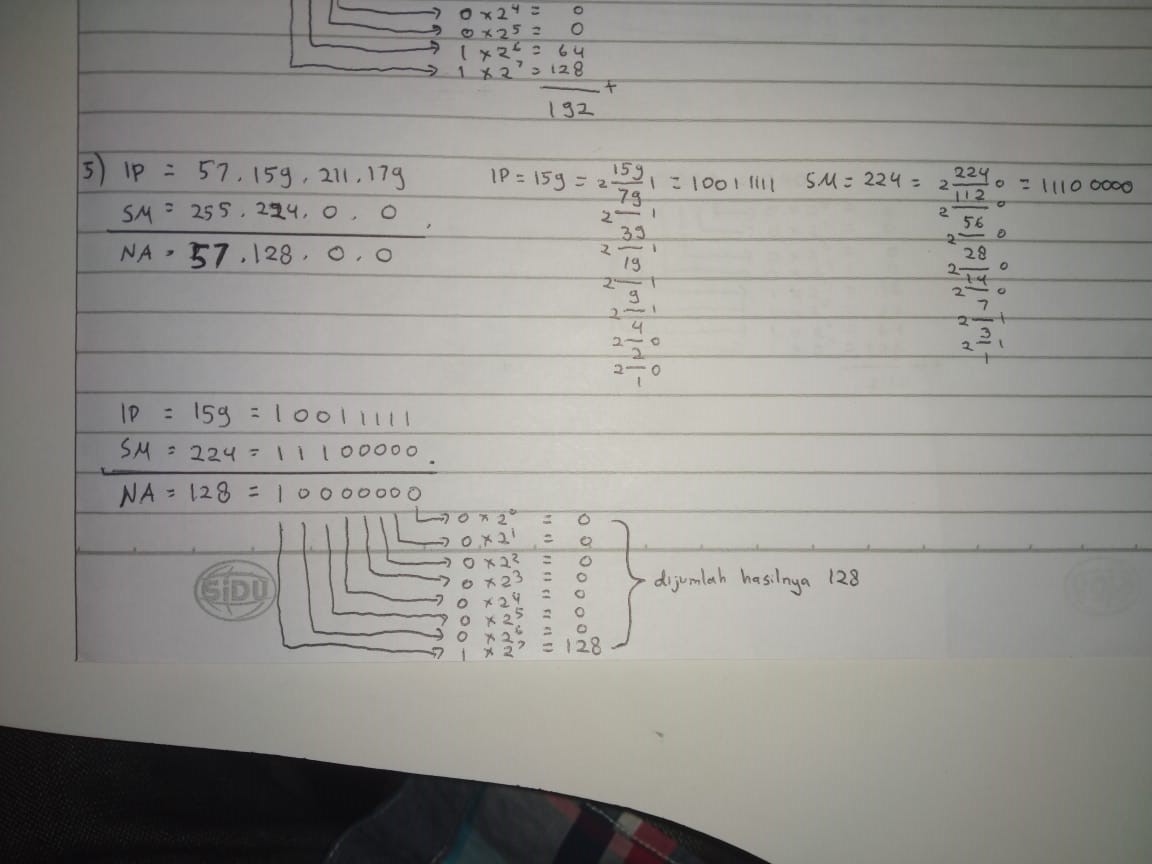 0 x 2⁴ = 0
0 x 2⁵ = 0
1 x 2⁶ = 64
1 x 2⁷ = 128
+
192
5) IP = 57.159.211.179
SM = 255.224.0.0
NA = 57.128.0.0
IP = 159 = 2 159 1 = 10011111
2 79 1
2 39 1
2 19 1
2 9 1
2 4 0
2 2 0
1
SM = 224 = 2 224 0 = 11100000
2 112 0
2 56 0
2 28 0
2 14 0
2 7 1
2 3 1
1
IP = 159 = 10011111
SM = 224 = 11100000
NA = 128 = 10000000
0 x 2⁰ = 0
0 x 2¹ = 0
0 x 2² = 0
0 x 2³ = 0
0 x 2⁴ = 0
0 x 2⁵ = 0
0 x 2⁶ = 0
1 x 2⁷ = 128
dijumlah hasilnya 128
SiDU